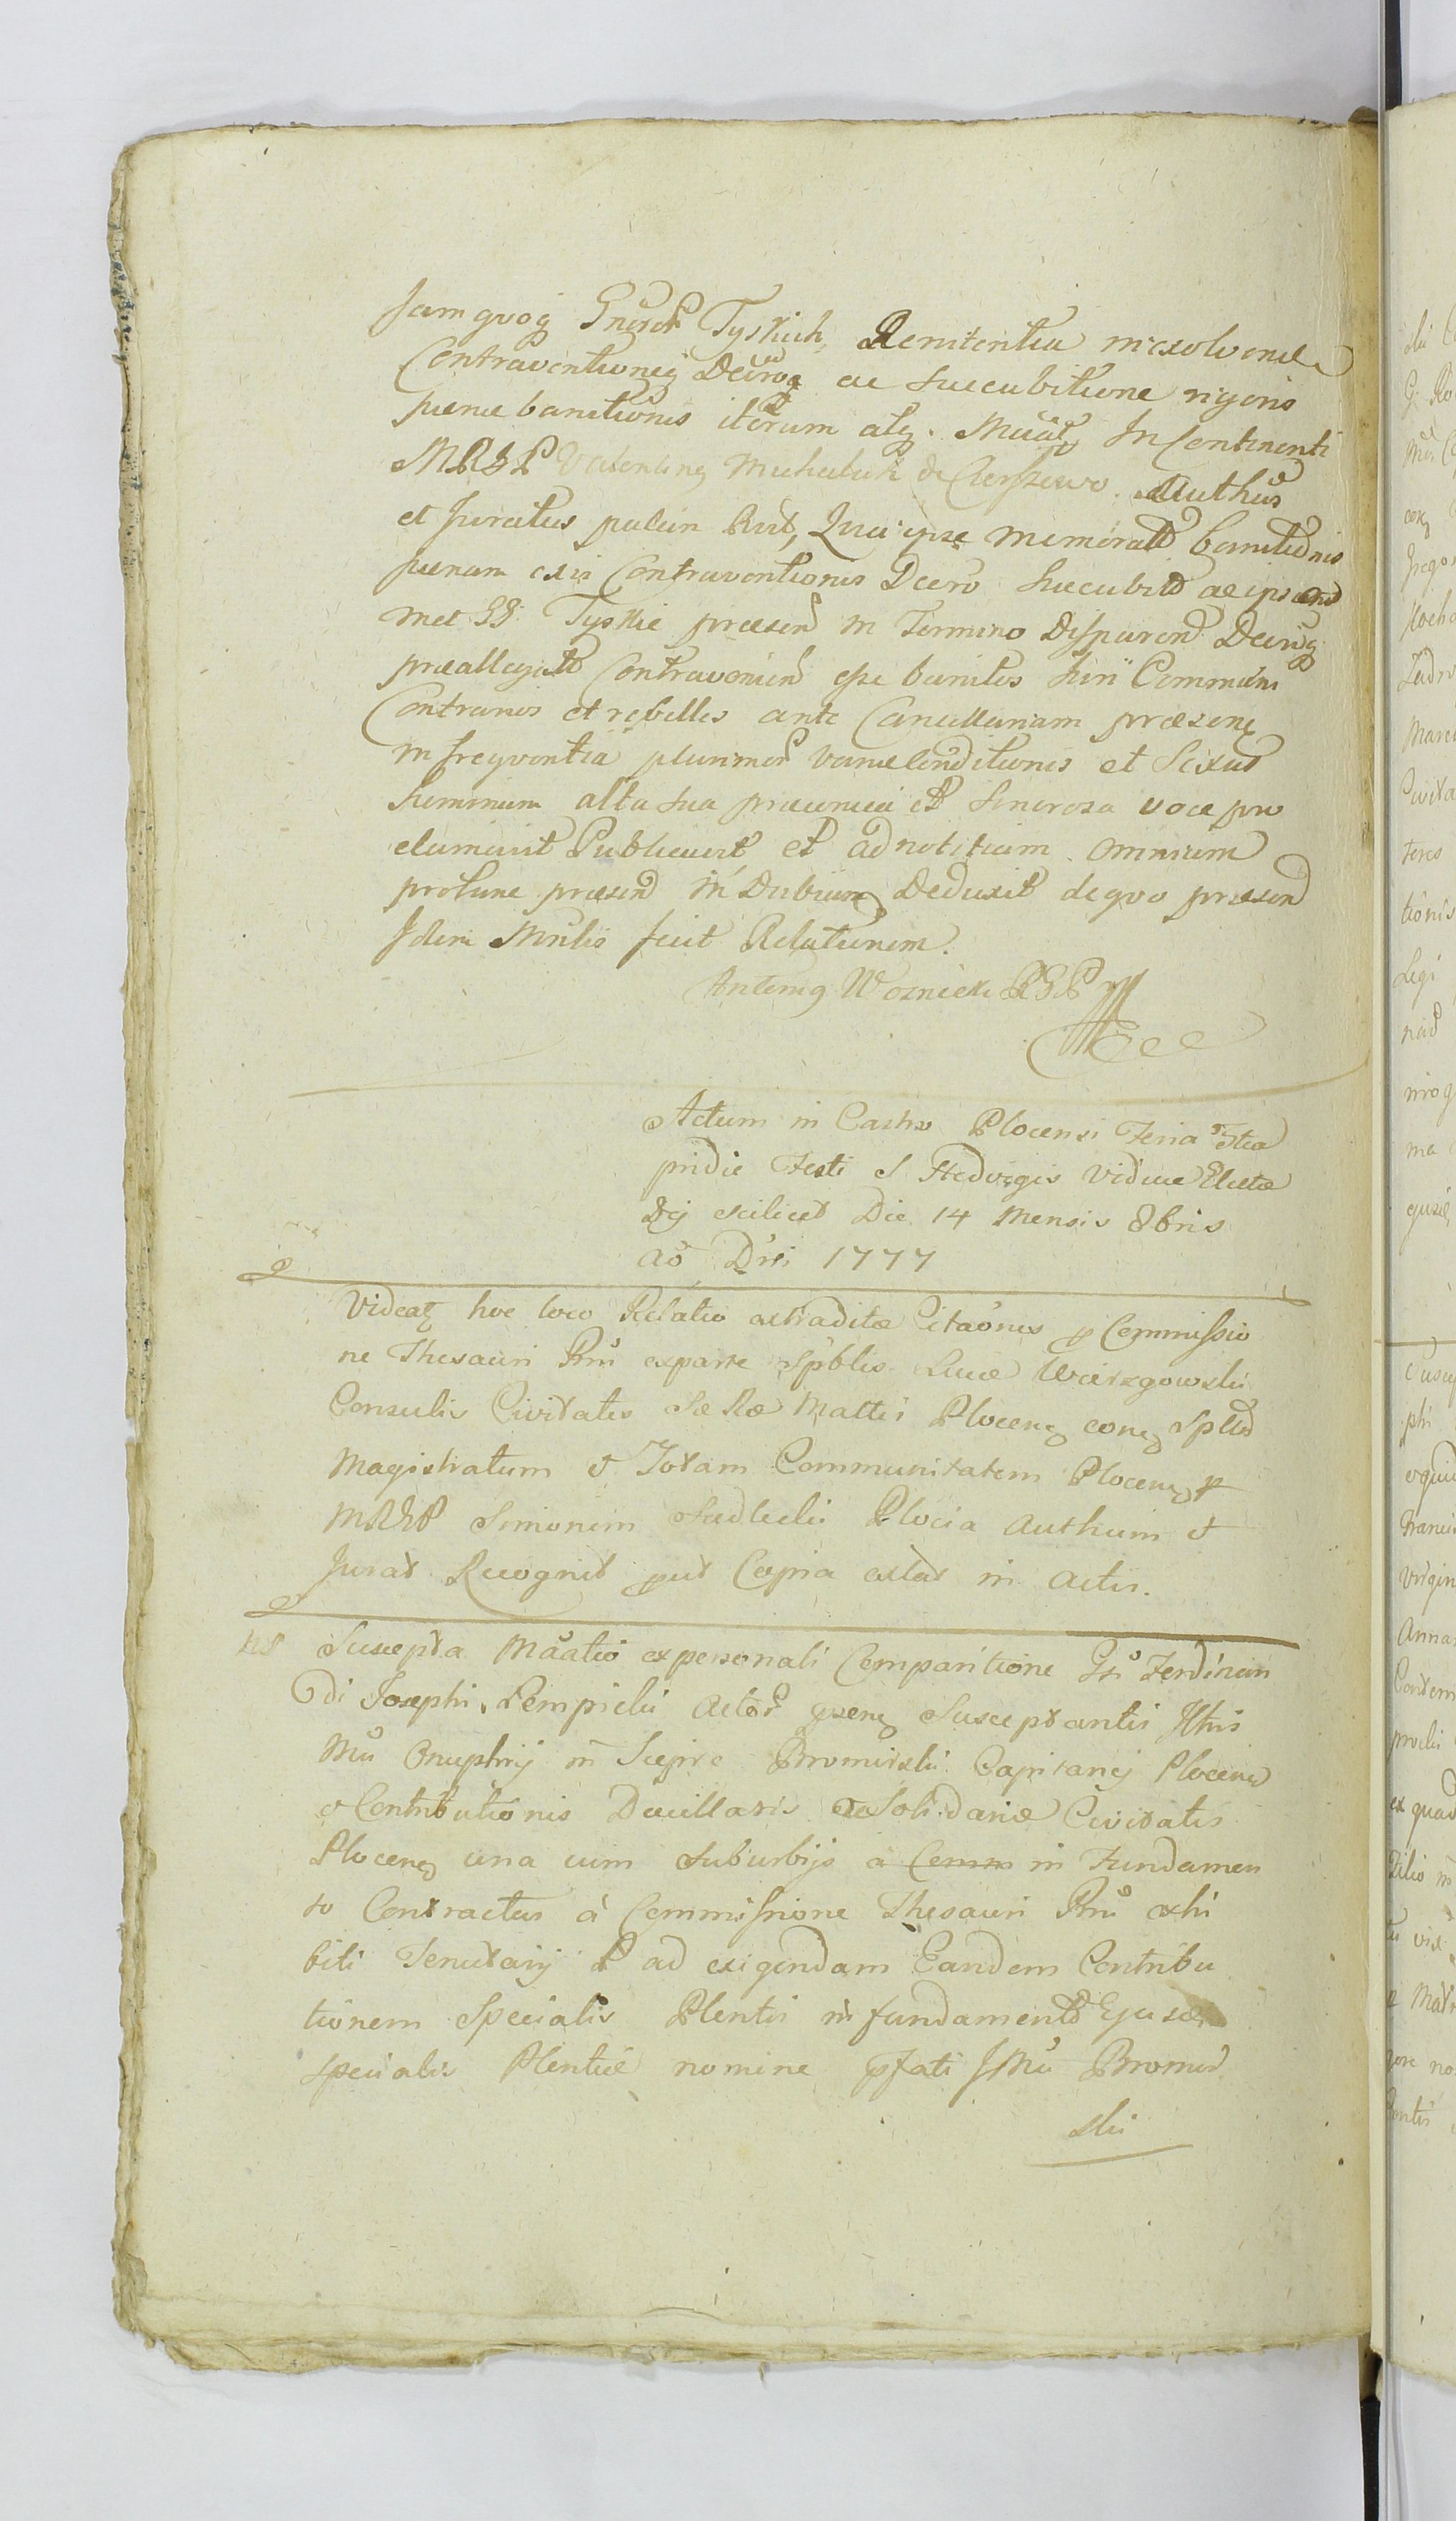 Jamquoq Gnosor Tyskich, Renitentia in exolvenda
Contraventioneq Decroq ac succubitione rigoris
pænæ banitionis iterum atq. InContinenti
MRGP Valentinq Michalak de Authus
et Juratus palam Rvit, Quia ipse memoratt banitionis
pænam exin Contraventionis Decro succubit ac ipsemet
met GG Tyskie præsend in Termino Disparend Decroq
præallegatt Contravenien esse banitos Juri Communi
Contrarios et rebelles ante Cancellariam præsenq
in freqventia plurimor variæ Conditionis et Sexus
hominum alta sua præconica et sonorosa voce pro
clamavit Publicavit et ad notitiam omnium
protunc præsend in Dubiam Deduxit de qvo præsend
Idem Mrlis fecit Relationem.
Antoniq Wozniek RGP
Actum in Castro Plocensi Feria 3tia
pridie Festi S Hedvigis Viduæ Electæ
Dej scilicet Die 14 Mensis 8bris
aõ Dni 1777
Videatq hoc loco Relatio extraditæ Citaõnis p Commissio
ne Thesauri Rni exparte Spblis Lucæ Wierzgowski
Consulis Civitatis Sæ Ræ Mattis Plocenq conq Splld
Magistratum et Totam Communitatem Plocenq p
MRGP Simonem Sadlecki Plocia Authum et
Jurat Recognit put Copia extat in Actis.
Suscepta Mãatio ex personali Comparitione Gsi Ferdinan
di Josephi Lempicki Actor præsenq Susceptantis Ilhis
Mu Onuphrij in Sciepire Bromirski Capitanej Plocenq
et Contributionis Ducillaris ac Solidariæ Civitatis
Plocenq una cum Suburbijs a Comm in Fundamen
to Contractus à Commissione Thesauri Rni exhi
biti Tenutarij et ad exigendam Eandem Contribu
tionem Specialis Plentis in fundamento Ejusdem
specialis Plentiæ nomine pfati IMu Bromir
ski